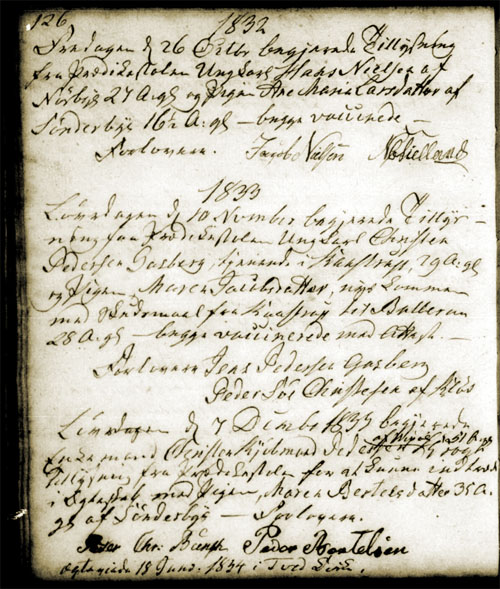 126
1832
Fredagen d 26 Octbr begjerede Tillysning
fra Prædikestolen Ungkarl Hans Nielsen af
Nørbye 27 A: gl og Pigen Ane Maria Larsdatter af
Sønderbye 16½ A: gl - begge vaccinerede -
Forlovere. Jacob Nielsen
1833
Løverdagen d 10 November begjerede Tillys-
ning fra Prædikestolen Ungkarl Christen
Pedersen Gasberg, tjenende i Kaastrup, 29 A: gl
og Pigen Maren Jacobsdatter, nys kommen
med Skudsmaal fra Kaastrup til
28 A: gl - begge vaccinerede med Attest. -
Forlovere Jens Pedersen Gasberg
Peder Christensen af
Løverdagen d 7 December 1833 begjerede
Enkemand Christen Kjøbmand Pedersen
51 A: gl
Tillysning fra Prædikestolen for at kunne indtræde
i Egteskab med Pigen, Maren Bertelsdatter 35 A:
gl af Sønderbye - Forlovere.
Peder Chr: Peder Bertelsen
Egteviede 18 Juni 1834 i Tved Kirke.